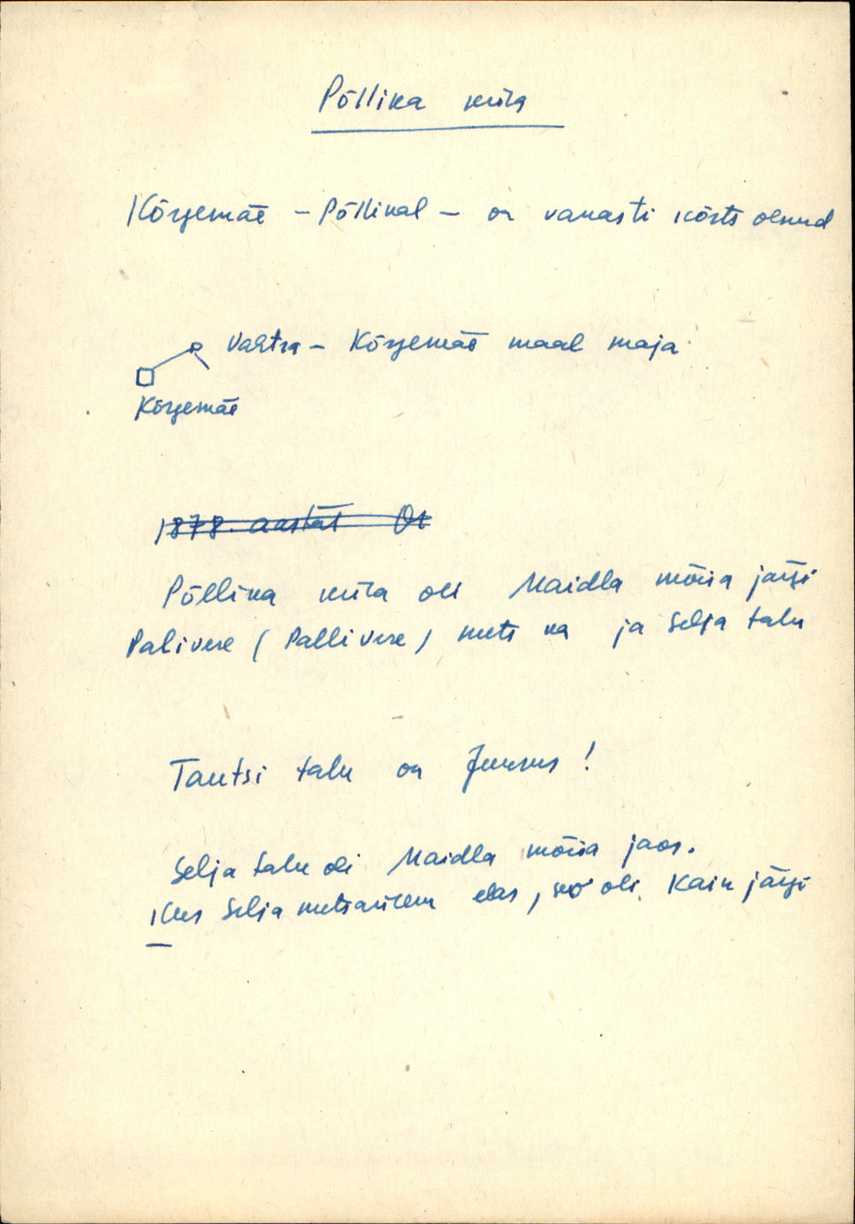 Põllika küla
Kõrjemäe - Põllikal - on vanasti kõrts olnud
Vahtra - Kõrjemäe maal maja
Kõrjemäe
1878. aastat
Põllika küla oli Maidla mõisa järgi
Palivere (Pallivere) mets ka ja Selja talu
Tautsi talu on !
Selja talu oli Maidla mõisa jaos.
Kus Selja metsaülem elas, see oli järgi